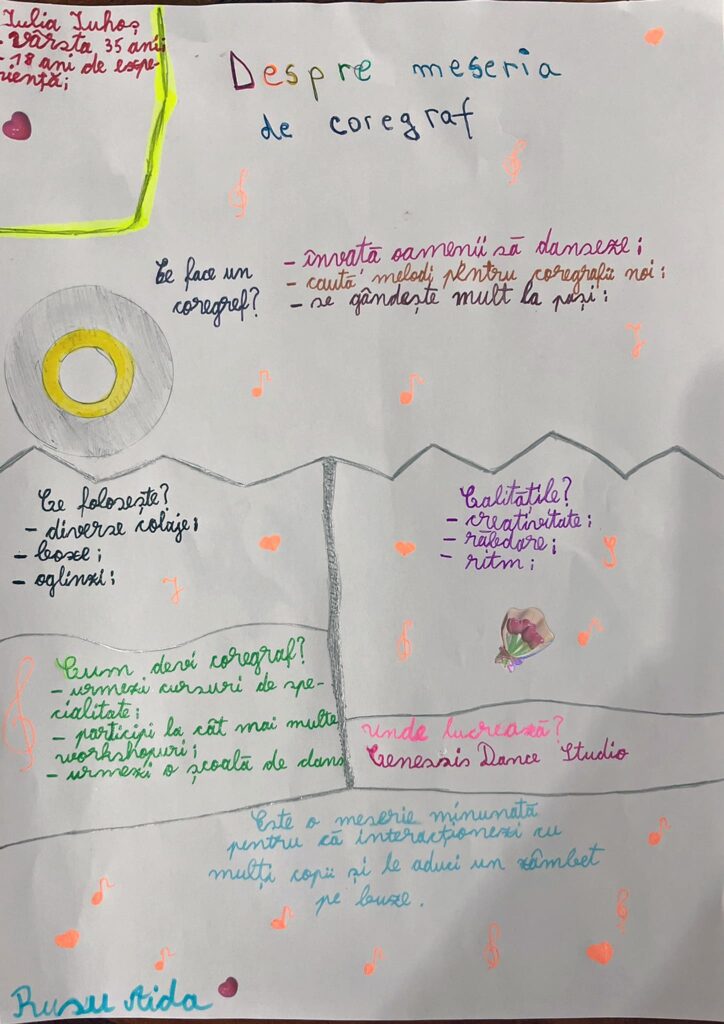 Iulia Iuhoș
- vârsta 35 ani;
- 18 ani de expe-
riență;
Despre meseria
de coregraf
Ce face un
coregref?
- învată oamenii să danseze;
- caută melodi pentru coregrafii noi;
- se gândește mult la pași;
Ce folosește?
- diverse colaje;
- boxe;
- oglinzi;
Calitățile?
- creativitate;
- răbdare;
- ritm;
Cum devi coregraf?
- urmezi cursuri de spe-
cialitate;
- participi la cât mai multe
workshopuri;
- urmezi o școală de dans
unde lucrează?
Genessis Dance Studio
Este o meserie minunată
pentru că interacționezi cu
mulți copii și le aduci un zâmbet
pe buze.
Rusu Aida